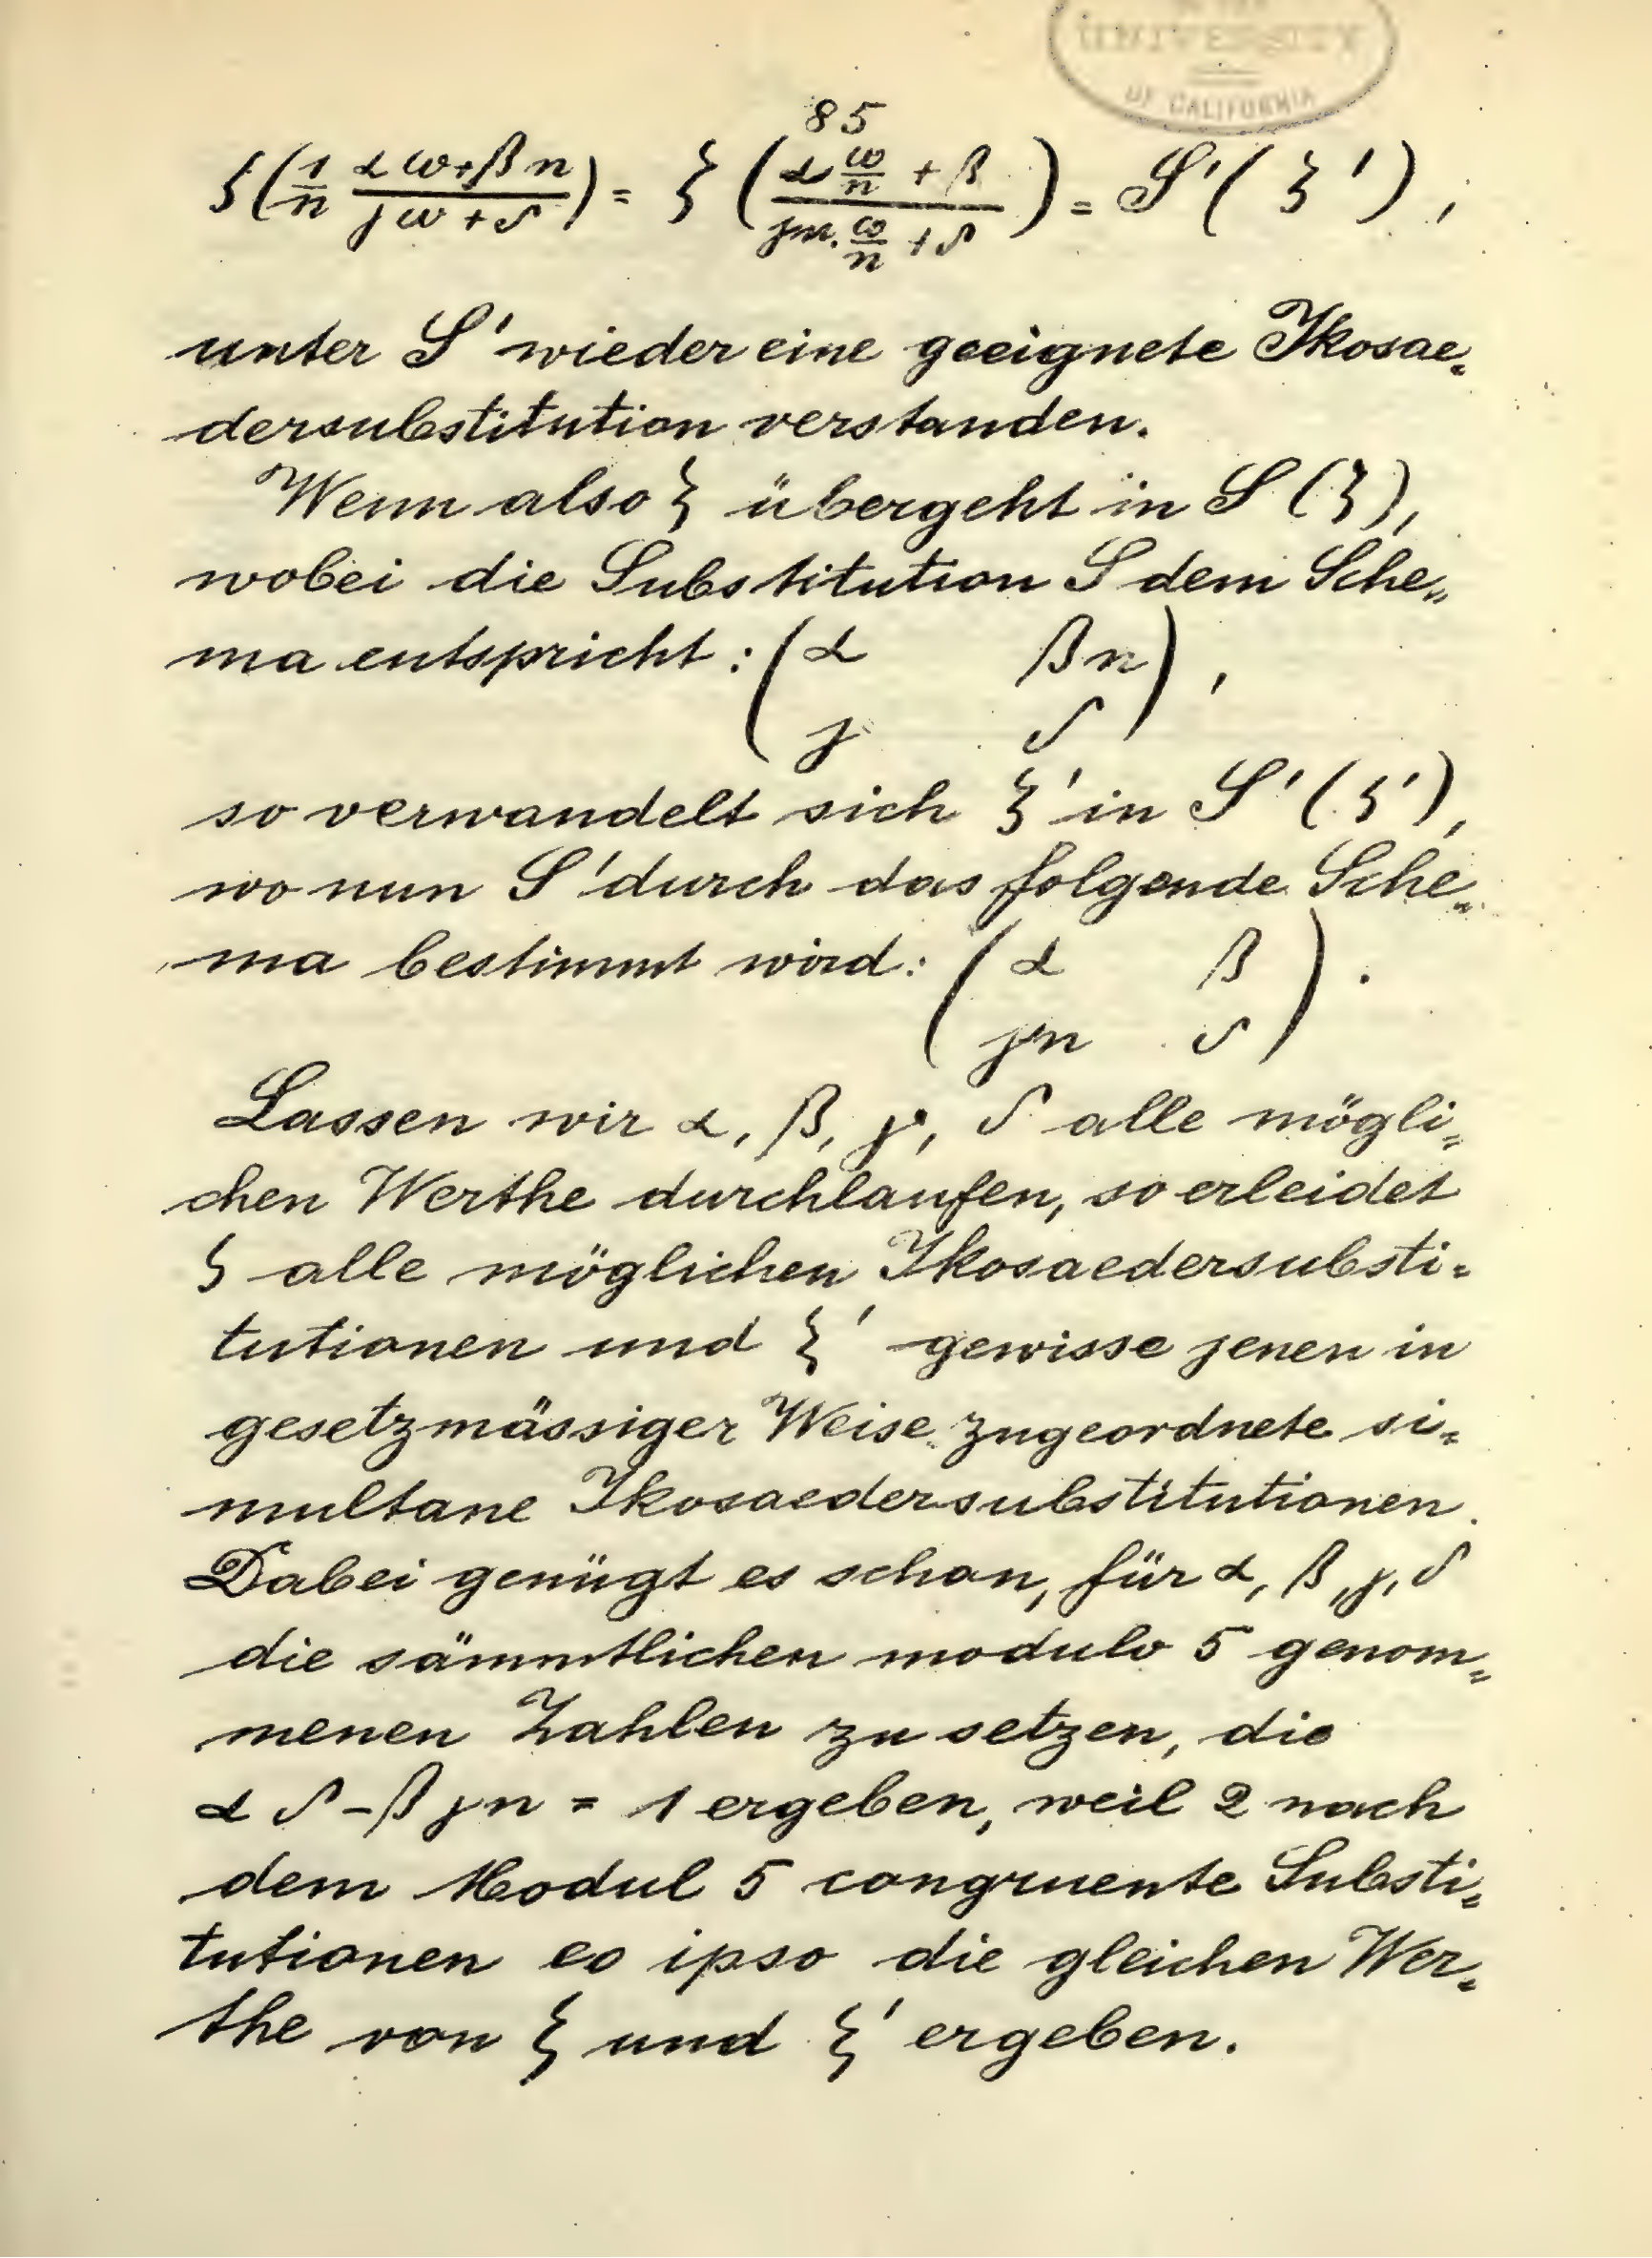 UNIVERSITY
OF CALIFORNIA
85
ξ(1/n (αω+βn)/(γω+δ)) = ξ((α ω/n + β)/(γn. ω/n + δ)) = S'(ξ'),
unter S' wieder eine geeignete Ikosae-
dersubstitution verstanden.
Wenn also ξ übergeht in S(ξ),
wobei die Substitution S dem Sche-
ma entspricht: (α βn),
(γ δ)
so verwandelt sich ξ' in S'(ξ'),
wo nun S' durch das folgende Sche-
ma bestimmt wird: (α β).
(γn δ)
Lassen wir α, β, γ, δ alle mögli-
chen Werthe durchlaufen, so erleidet
ξ alle möglichen Ikosaedersubsti-
tutionen und ξ' gewisse jenen in
gesetzmässiger Weise zugeordnete si-
multane Ikosaedersubstitutionen.
Dabei genügt es schon, für α, β, γ, δ
die sämmtlichen modulo 5 genom-
menen Zahlen zu setzen, die
αδ-βγn = 1 ergeben, weil 2 nach
dem Modul 5 congruente Substi-
tutionen eo ipso die gleichen Wer-
the von ξ und ξ' ergeben.